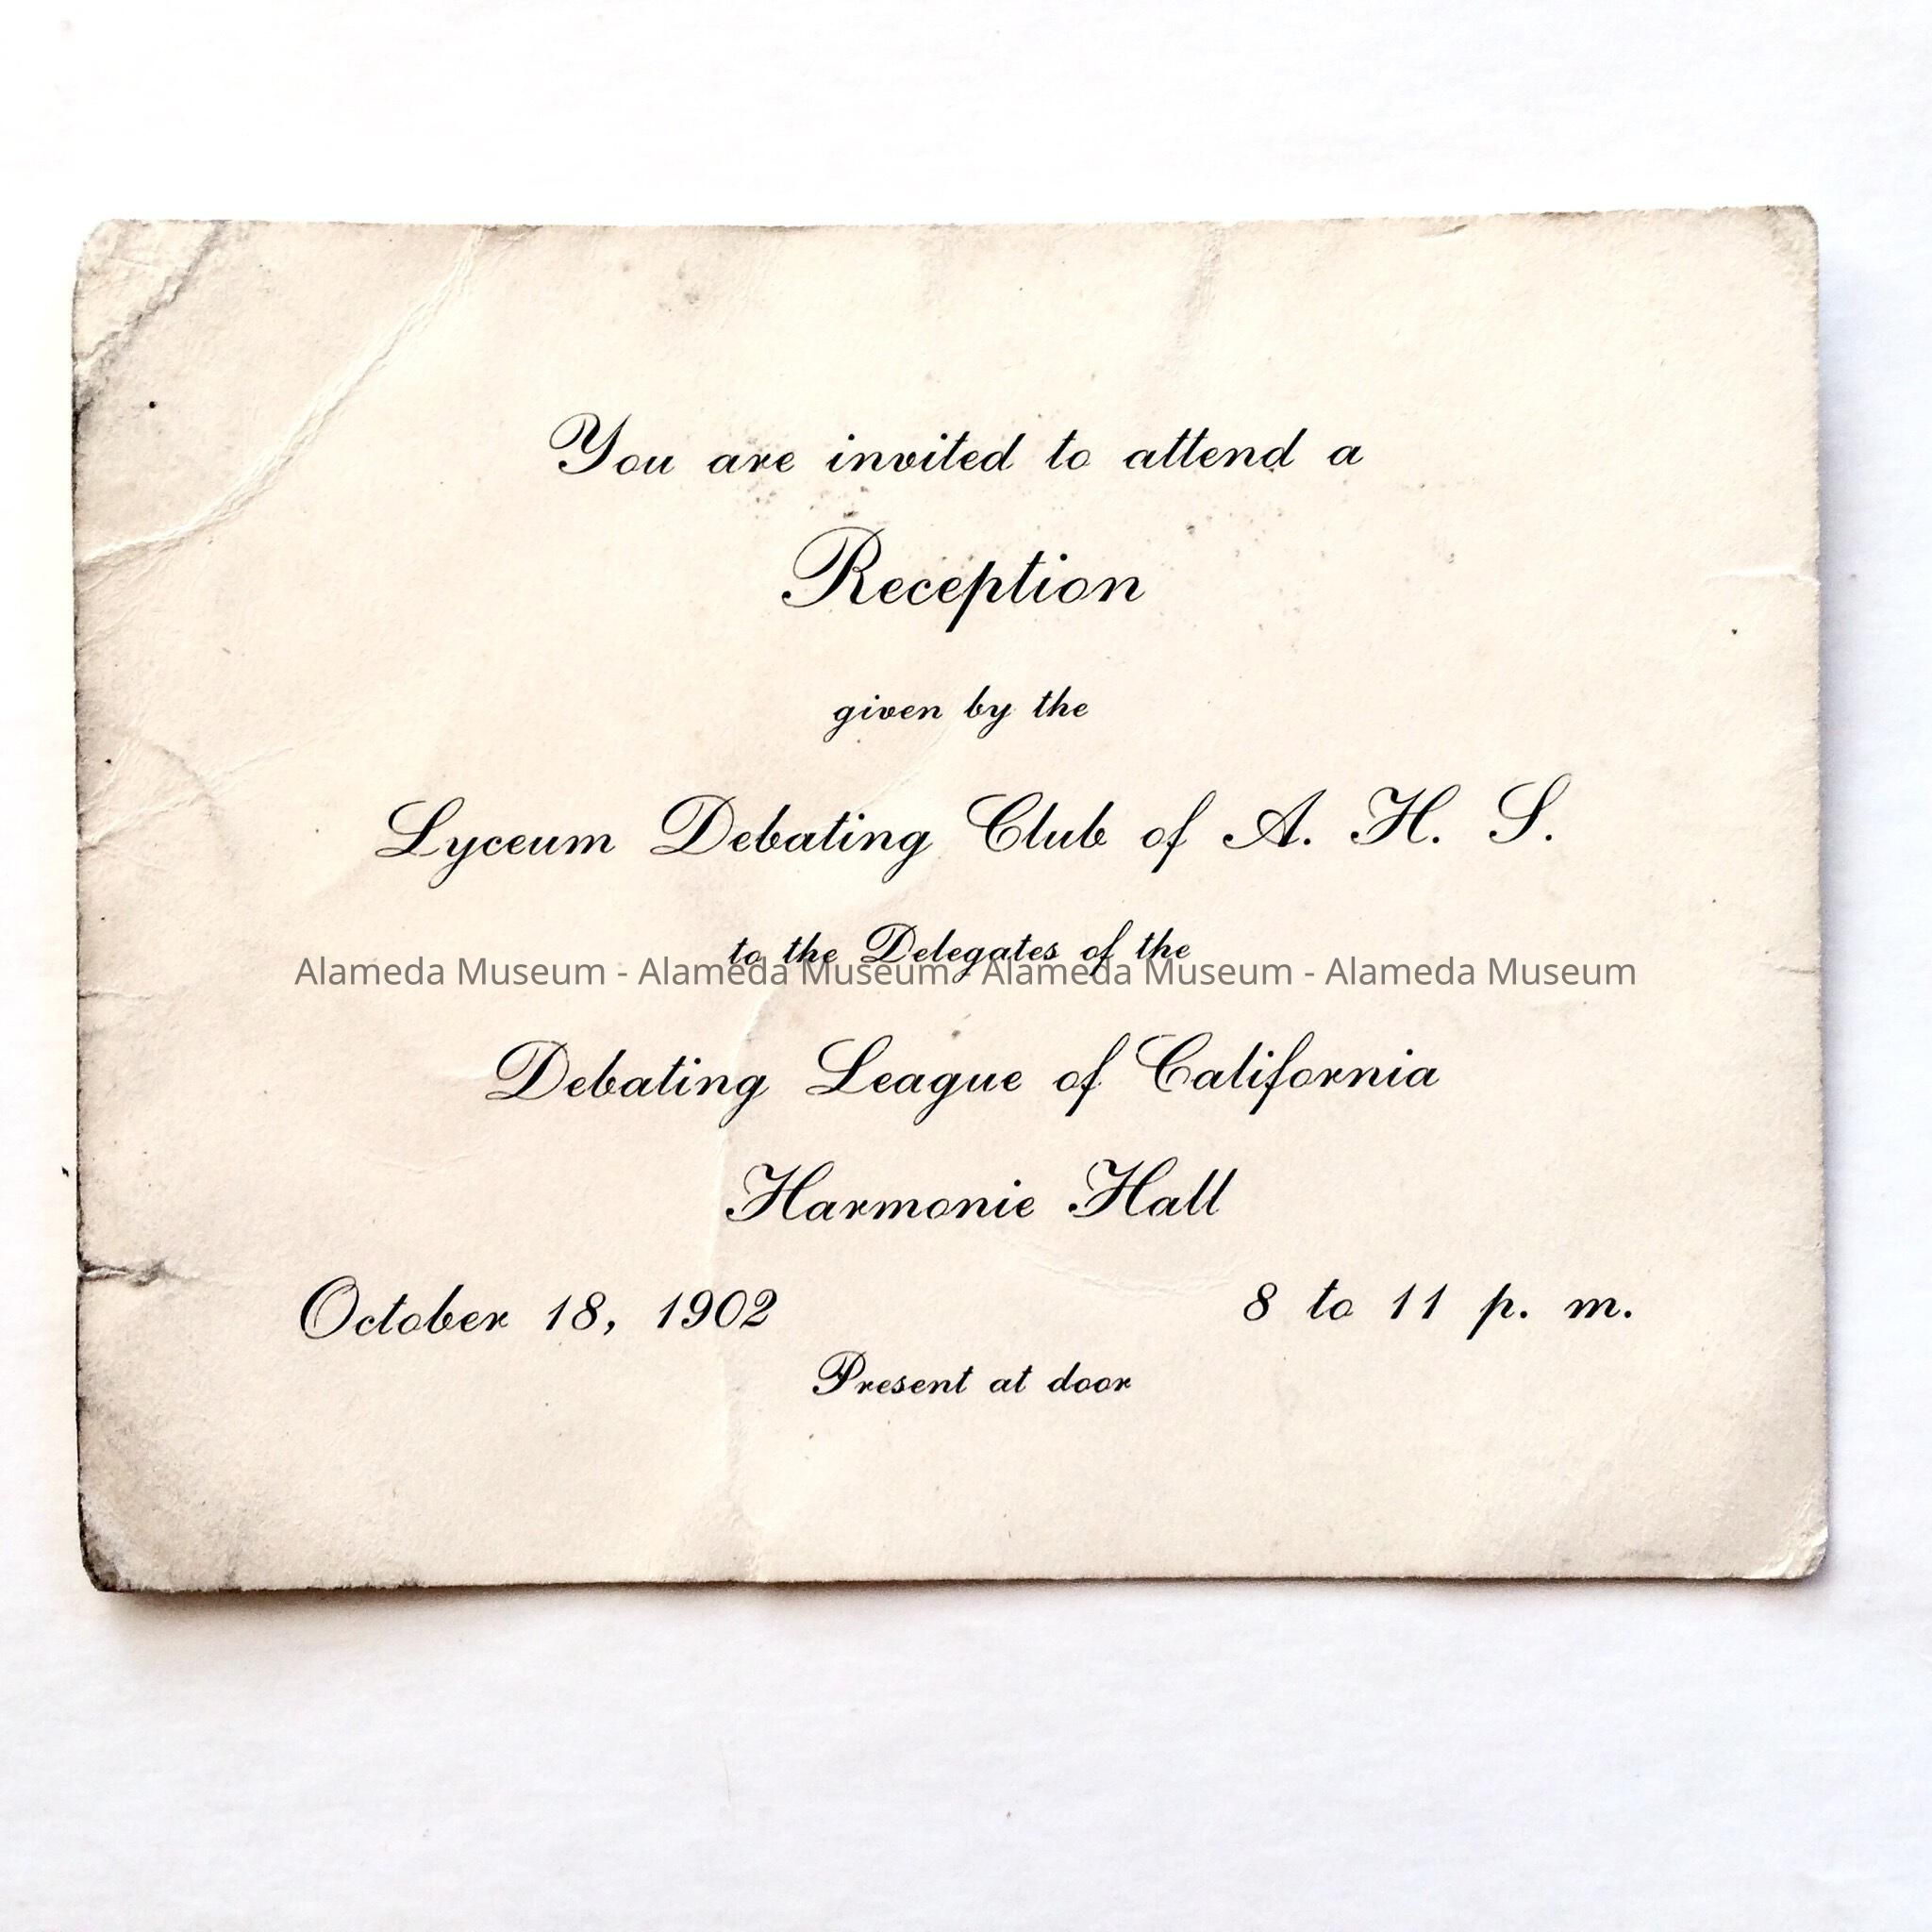 You are invited to attend a
Reception
given by the
Lyceum Debating Club of A. H. S.
to the Delegates of the
Alameda Museum - Alameda Museum - Alameda Museum - Alameda Museum
Debating League of California
Harmonie Hall
October 18, 1902 8 to 11 p. m.
Present at door